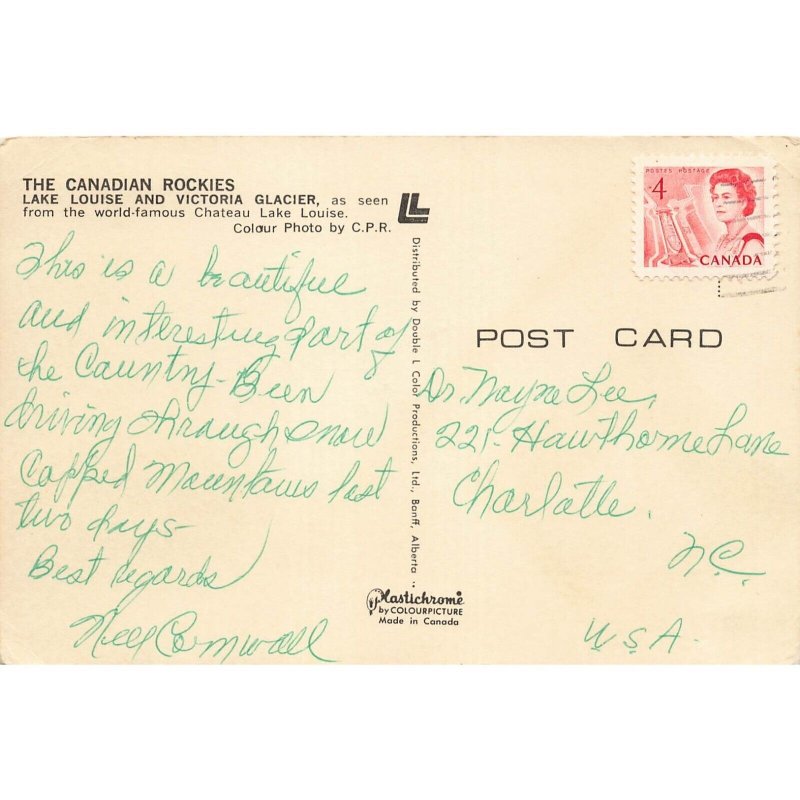 THE CANADIAN ROCKIES
LAKE LOUISE AND VICTORIA GLACIER, as seen
from the world-famous Chateau Lake Louise.
Colour Photo by C.P.R.
This is a beautiful
and interesting part of
the Country. Been
driving through snow
Capped Mountains last
two days-
Best regards
Nell Cornwall
LL
Distributed by Double L Color Productions, Ltd., Banff, Alberta
Plastichrome
by COLOURPICTURE
Made in Canada
POSTES POSTAGE
4
CANADA
POST CARD
Dr. Wayne Lee,
221- Hawthorne Lane
Charlotte,
N.C.
U.S.A.